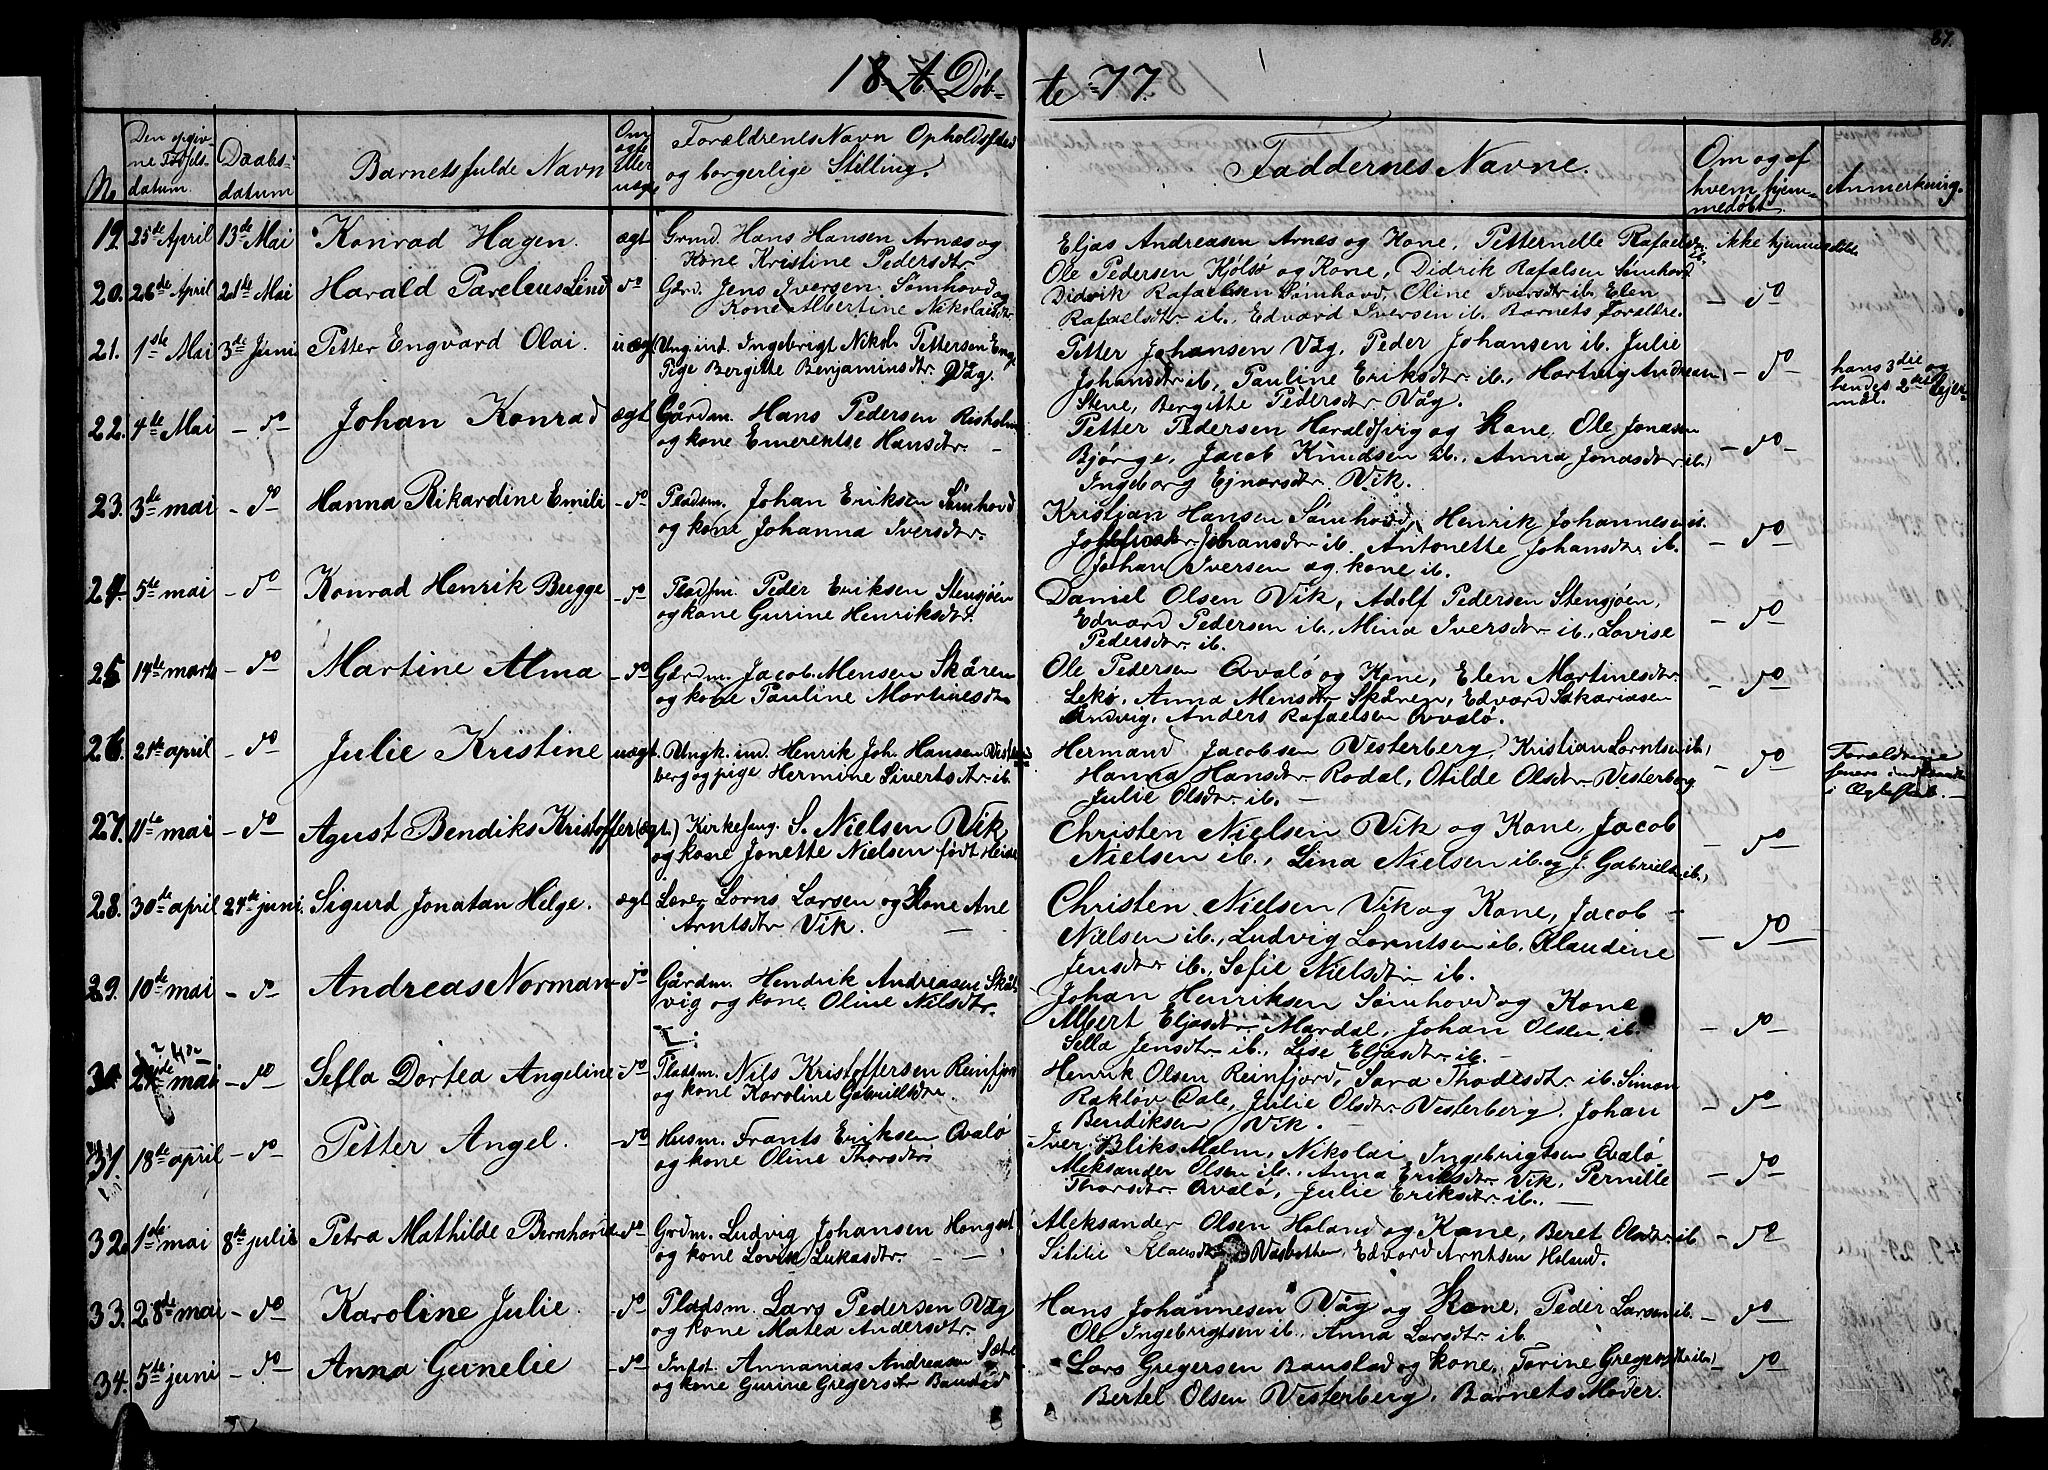 87.
18 A. Døb-
te 77.
No
Den opgiv-
ne Føds.
datum.
Daabs-
datum
Barnets fulde Navn
Om
ægte
eller
uægt
Forældrenes Navn Opholdssted
og borgerlige Stilling.
Faddernes Navne.
Om og af
hvem hjem-
medøbt
Anmerkning.
19. 25de April 13de Mai Konrad Hagen. ægt Grmd. Hans Hansen Arnæs og
Kone Kristine Pedersdtr.
Eljas Andreasen Arnes og Kone, Petternelle Rafaelsdtr ib.
Ole Pedersen Kjølsø og Kone, Didrik Rafalsen Sømhovd
ikke hjemmedøbt
20. 26de April 21de Mai Harald Parelius Lind do Gård. Jens Iversen Sømhovd og
Kone Albertine Nikolaisdtr.
Didrik Rafaelsen Sømhovd, Oline Iversdtr ib. Elen
Rafaelsdtr ib., Edvard Iversen ib. Barnets Forældre.
- do
21. 1ste Mai 3de Juni Petter Engvard Olai. uægt Ung. ind. Ingebrigt Nikol. Pettersen
Pige Bergitte Benjaminsdtr. Våg.
Petter Johansen Våg, Peder Johansen ib. Julie
Johansdtr ib., Pauline Eriksdtr ib., Hartvig Andreas
Stene, Bergitte Pedersdtr Våg.
- do - hans 3die og
hendes 2det Lejer-
mål.
22. 4de Mai - do Johan Konrad ægt Gårdm. Hans Pedersen Risholm
og kone Emerentse Hansdtr. -
Petter Pedersen Haraldsvig og Kone, Ole Jonasen
Bjørge, Jacob Knudsen ib., Anna Jonasdtr ib.,
Ingeborg Ejnarsdtr. Vik.
- do -
23. 3de mai - do Hanna Rikardine Emilie - do Pladsm. Johan Eriksen Sømhovd
og kone Johanna Iversdtr.
Kristjan Hansen Sømhovd, Henrik Johannesen ib.
Johansdtr ib. Antonette Johansdtr ib.
Johan Iversen og kone ib.
- do -
24. 5te mai - do Konrad Henrik Bugge - do Pladsm. Peder Eriksen Stensjøen
og kone Gurine Henriksdtr.
Daniel Olsen Vik, Adolf Pedersen Stensjøen,
Edvard Pedersen ib., Mina Iversdtr ib., Lovise
Pedersdtr ib.
- do -
25 14de marts - do Martine Alma - do Gårdm. Jacob Mensen Skåren
og kone Pauline Martinesdtr
Ole Pedersen Qvalø og Kone, Elen Martinesdtr
Lekø, Anna Mensdtr Skåren, Edvard Sakariasen
Andvig, Anders Rafaelsen Qvalø.
- do -
26. 21de april - do Julie Kristine uægt Ungk. ind. Henrik Joh. Hansen Vester-
berg og pige Hermine Sivertsdtr ib.
Hermand Jacobsen Vesterberg, Kristian Lorntsen ib,
Hanna Hansdtr Rodal, Otilde Olsdtr Vesterberg
Julie Olsdtr ib. -
- do - Forældrene
senere indtraadt
i Ægteskab. -
27. 11te mai - do Agust Bendiks Kristoffer (ægt.) Kirkesang. S. Nielsen Vik
og kone Jonette Nielsen født Heide
Christen Nielsen Vik og Kone, Jacob
Nielsen ib., Lina Nielsen ib. og J. Gabrielsen ib.,
- do -
28. 30de april 24de juni. Sigurd Jonatan Helge. ægt Lærer Lorns Larsen og Kone Ane
Arntsdtr Vik. -
Christen Nielsen Vik og Kone, Jacob
Nielsen ib., Ludvig Lorntsen ib. Klaudine
Jensdtr ib., Sofie Nielsdtr ib.
- do -
29. 10de mai - do Andreas Norman - do Gårdm. Hendrik Andreasen Skåls-
vig og kone Oline Nilsdtr.
Johan Henriksen Sømhovd og Kone
Albert Eljasdtr Mardal, Johan Olsen ib.
Sella Jensdtr ib., Lise Eljasdtr ib.
- do -
30. mai - do Sella Dortea Angeline - do Pladsm. Nils Kristoffersen Reinfjord
og kone Karoline Gabrielsdtr.
Henrik Olsen Reinfjord, Sara Thodesdtr ib. Simon
Rakløv Dale, Julie Olsdtr Vesterberg, Johan
Bendiksen Vik. -
- do -
31. 18de april - do Petter Angel. - do Husm. Frants Eriksen Qvalø
og kone Oline Thorsdtr
Iver Bliks Malm, Nikolai Ingebrigtsen Qvalø
Aleksander Olsen ib., Anna Eriksdtr Vik, Pernille
Thorsdtr Qvalø, Julie Eriksdtr ib. -
- do -
32. 1ste mai 8de juli Petra Mathilde Bernhardine do Grdm. Ludvig Johansen Hongset
og kone Lovise Lukasdtr. -
Aleksander Olsen Holand og Kone, Beret Olsdtr ib
Sibilie Klausdtr Edvard Arntsen Holand.
- do -
33. 28de mai - do Karoline Julie. - do Pladsm. Lars Pedersen Våg
og kone Matea Andersdtr.
Hans Johannesen Våg og Kone, Peder Larsen ib.
Ole Ingebrigtsen ib., Anna Larsdtr ib.
- do -
34. 5te juni - do Anna Gunelie - do Indst. Annanias Andreasen Sæter
og kone Gurine Gregersdtr Baustad
Lars Gregersen Baustad og kone, Torine Gregersdtr ib,
Bertel Olsen Vesterberg, Barnets Moder.
- do -